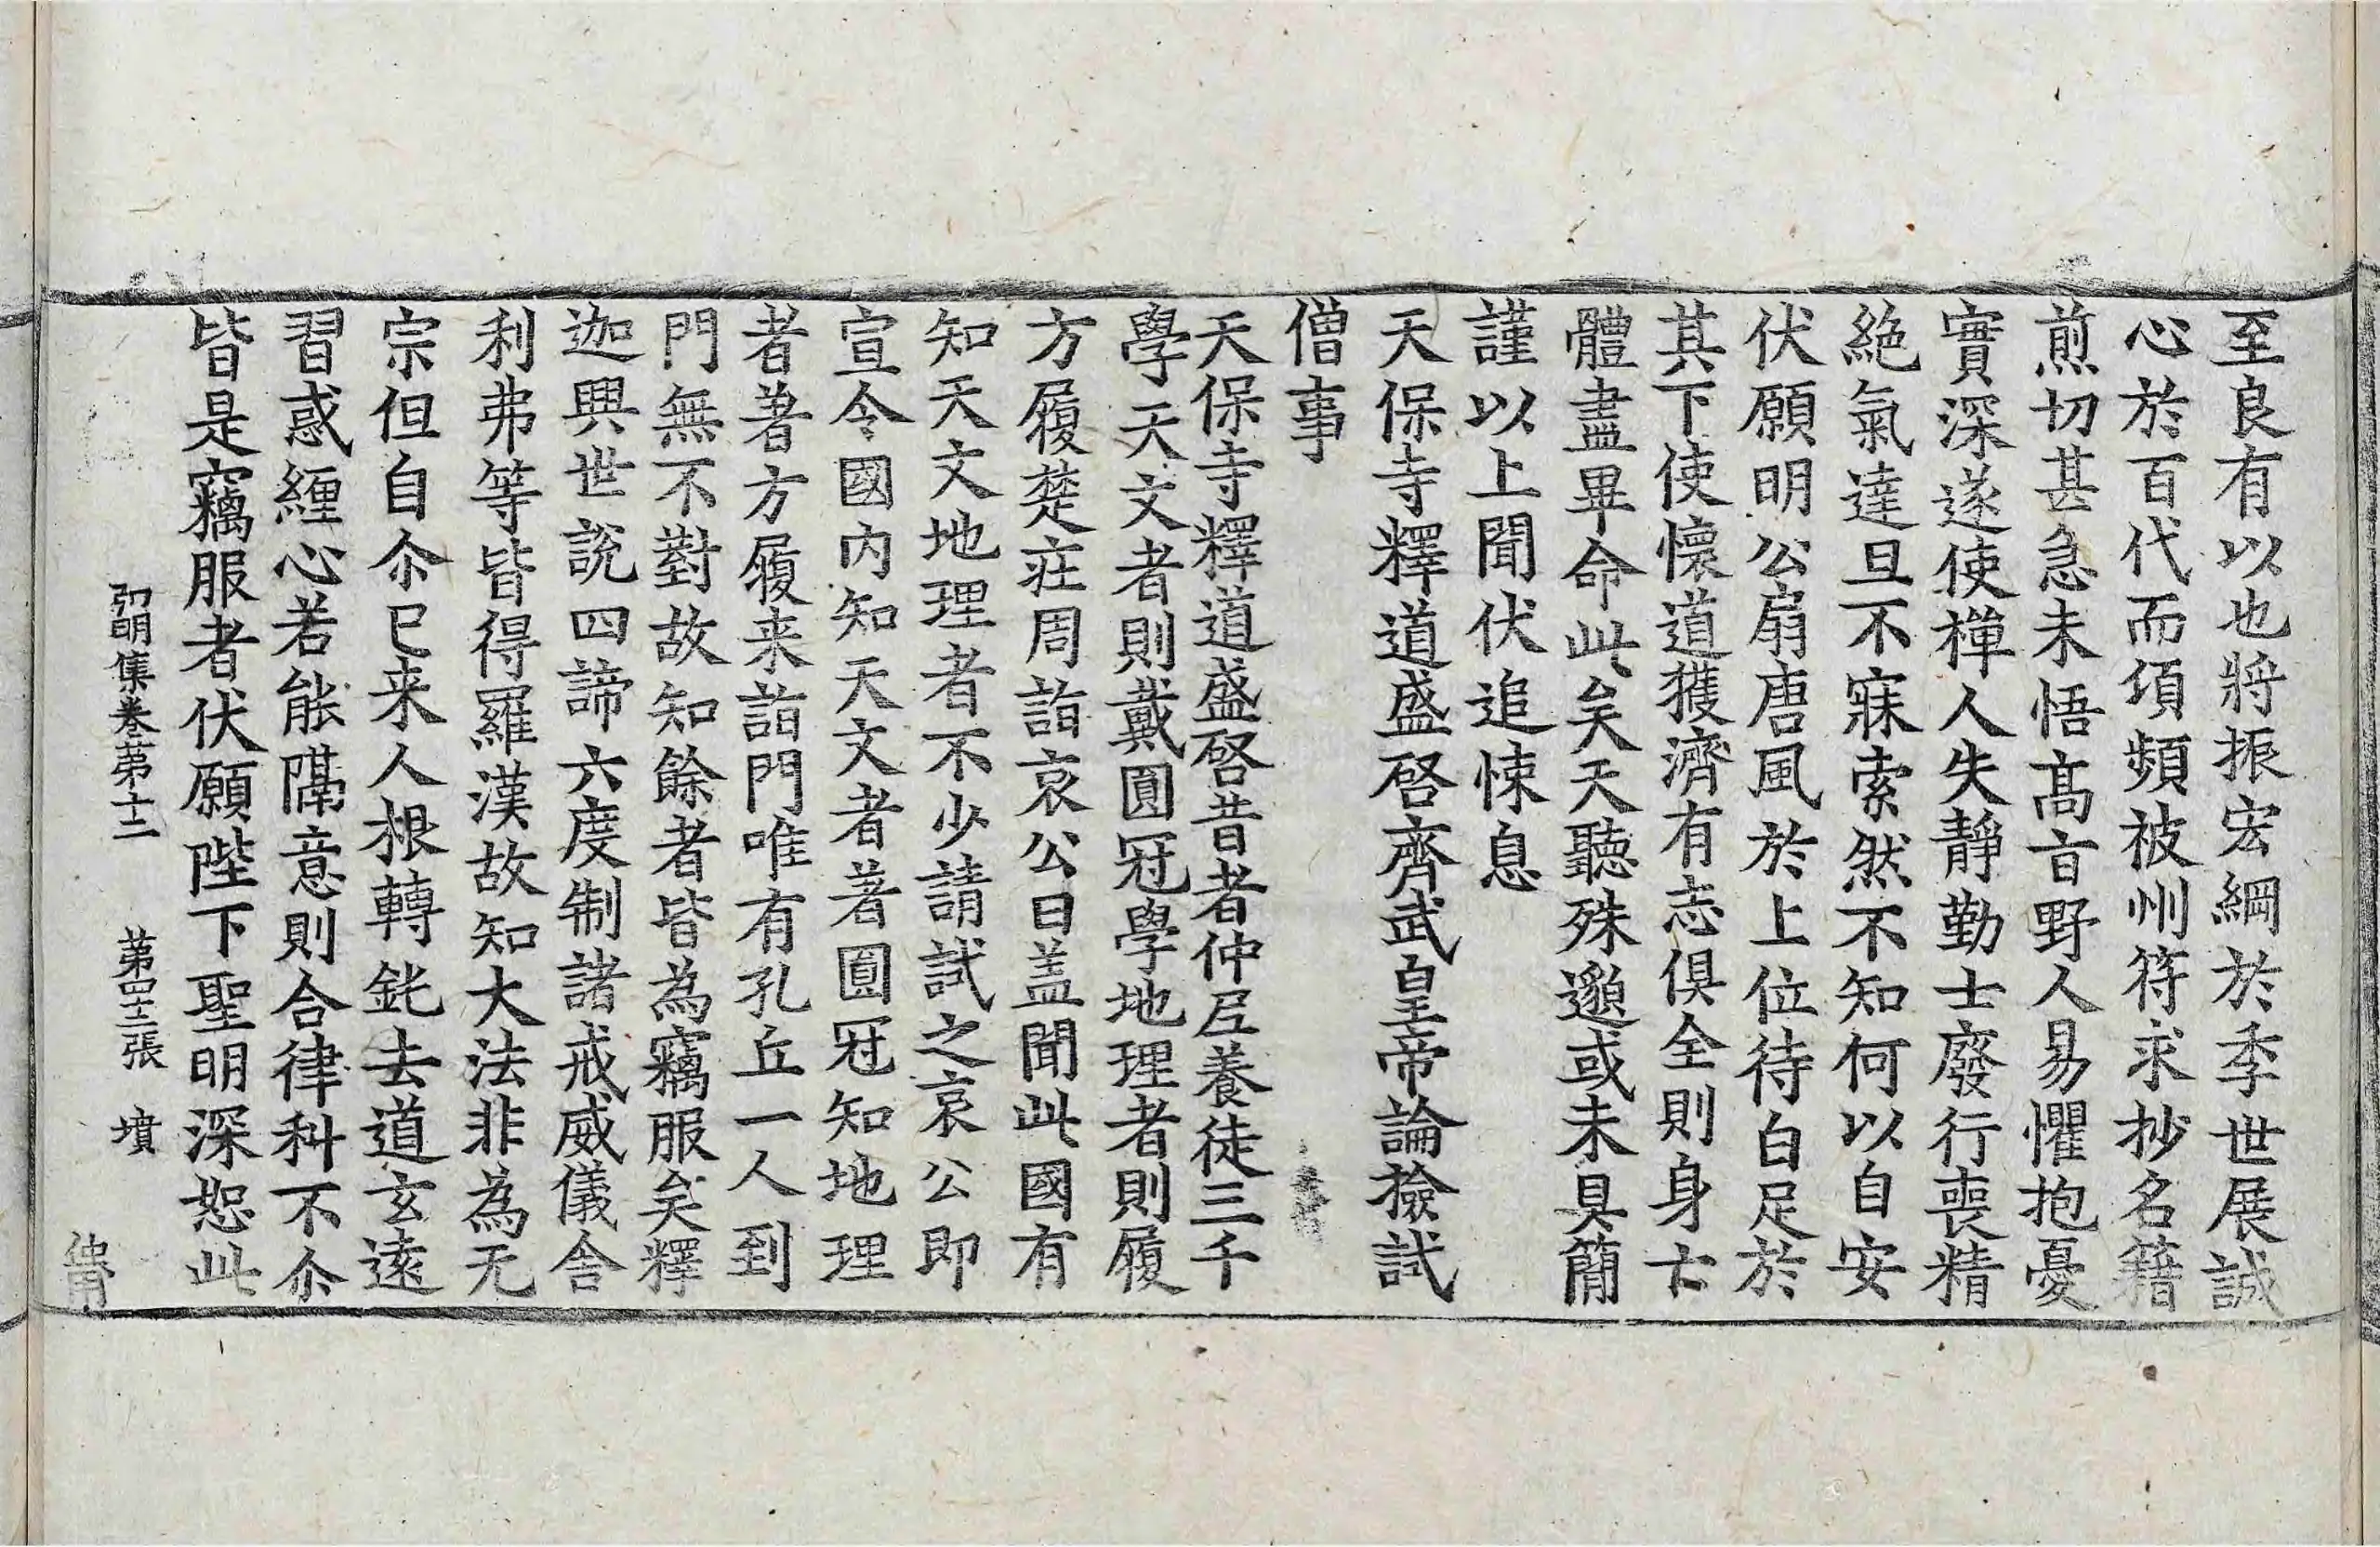 至良有以也將振宏綱於季世展誠
心於百代而頃頻被州符求抄名籍
煎切甚急未悟髙旨野人易懼抱憂
實深遂使禪人失靜勤士廢行喪精
絶氣達旦不寐索然不知何以自安
伏願明公扇唐風於上位待白足於
其下使懷道獲濟有志俱全則身亡
體盡畢命此矣天聽殊邈或未具簡
謹以上聞伏追悚息
天保寺釋道盛啓齊武皇帝論撿試
僧事
天保寺釋道盛啓昔者仲尼養徒三千
學天文者則戴圓冠學地理者則履
方履楚莊周詣哀公曰盖聞此國有
知天文地理者不少請試之哀公即
宣令國内知天文者著圓冠知地理
者著方履来詣門唯有孔丘一人到
門無不對故知餘者皆為竊服矣釋
迦興世說四諦六度制諸戒威儀舍
利弗等皆得羅漢故知大法非為无
宗但自尒已来人根轉鈍去道玄遠
習惑纏心若能隔意則合律科不尒
皆是竊服者伏願陛下聖明深恕此
弘明集卷第十二 第四十三張 墳